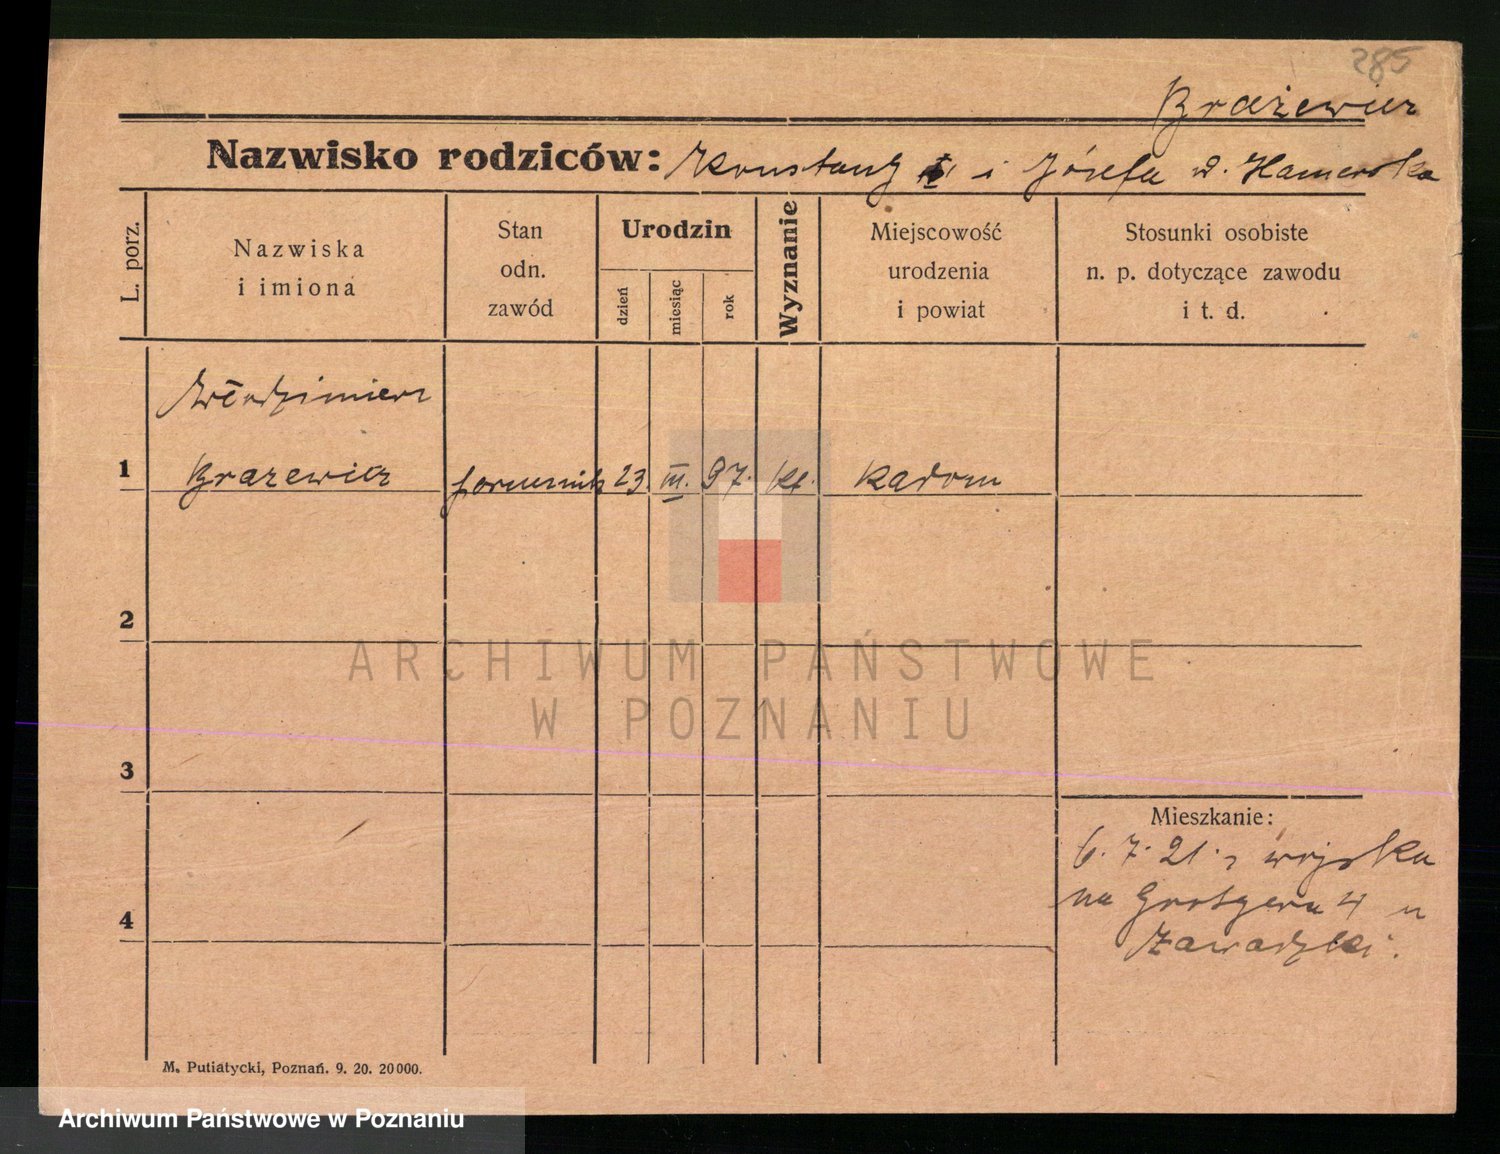 285
Brażewicz
Nazwisko rodziców: Konstanty i Józefa z. Hamerska
L. porz.
Nazwiska
i imiona
Stan
odn.
zawód
Urodzin
dzień
miesiąc
rok
Wyznanie
Miejscowość
urodzenia
i powiat
Stosunki osobiste
n. p. dotyczące zawodu
i t. d.
Włodzimierz
1 Brazewicz porucznik 23. III. 97. kt. Radom
2
3
4
Mieszkanie:
6. 7. 21. z wojska
na Grotgera 4 u
Zawadzki.
M. Putiatycki, Poznań. 9. 20. 20000.
ARCHIWUM PAŃSTWOWE
W POZNANIU
Archiwum Państwowe w Poznaniu